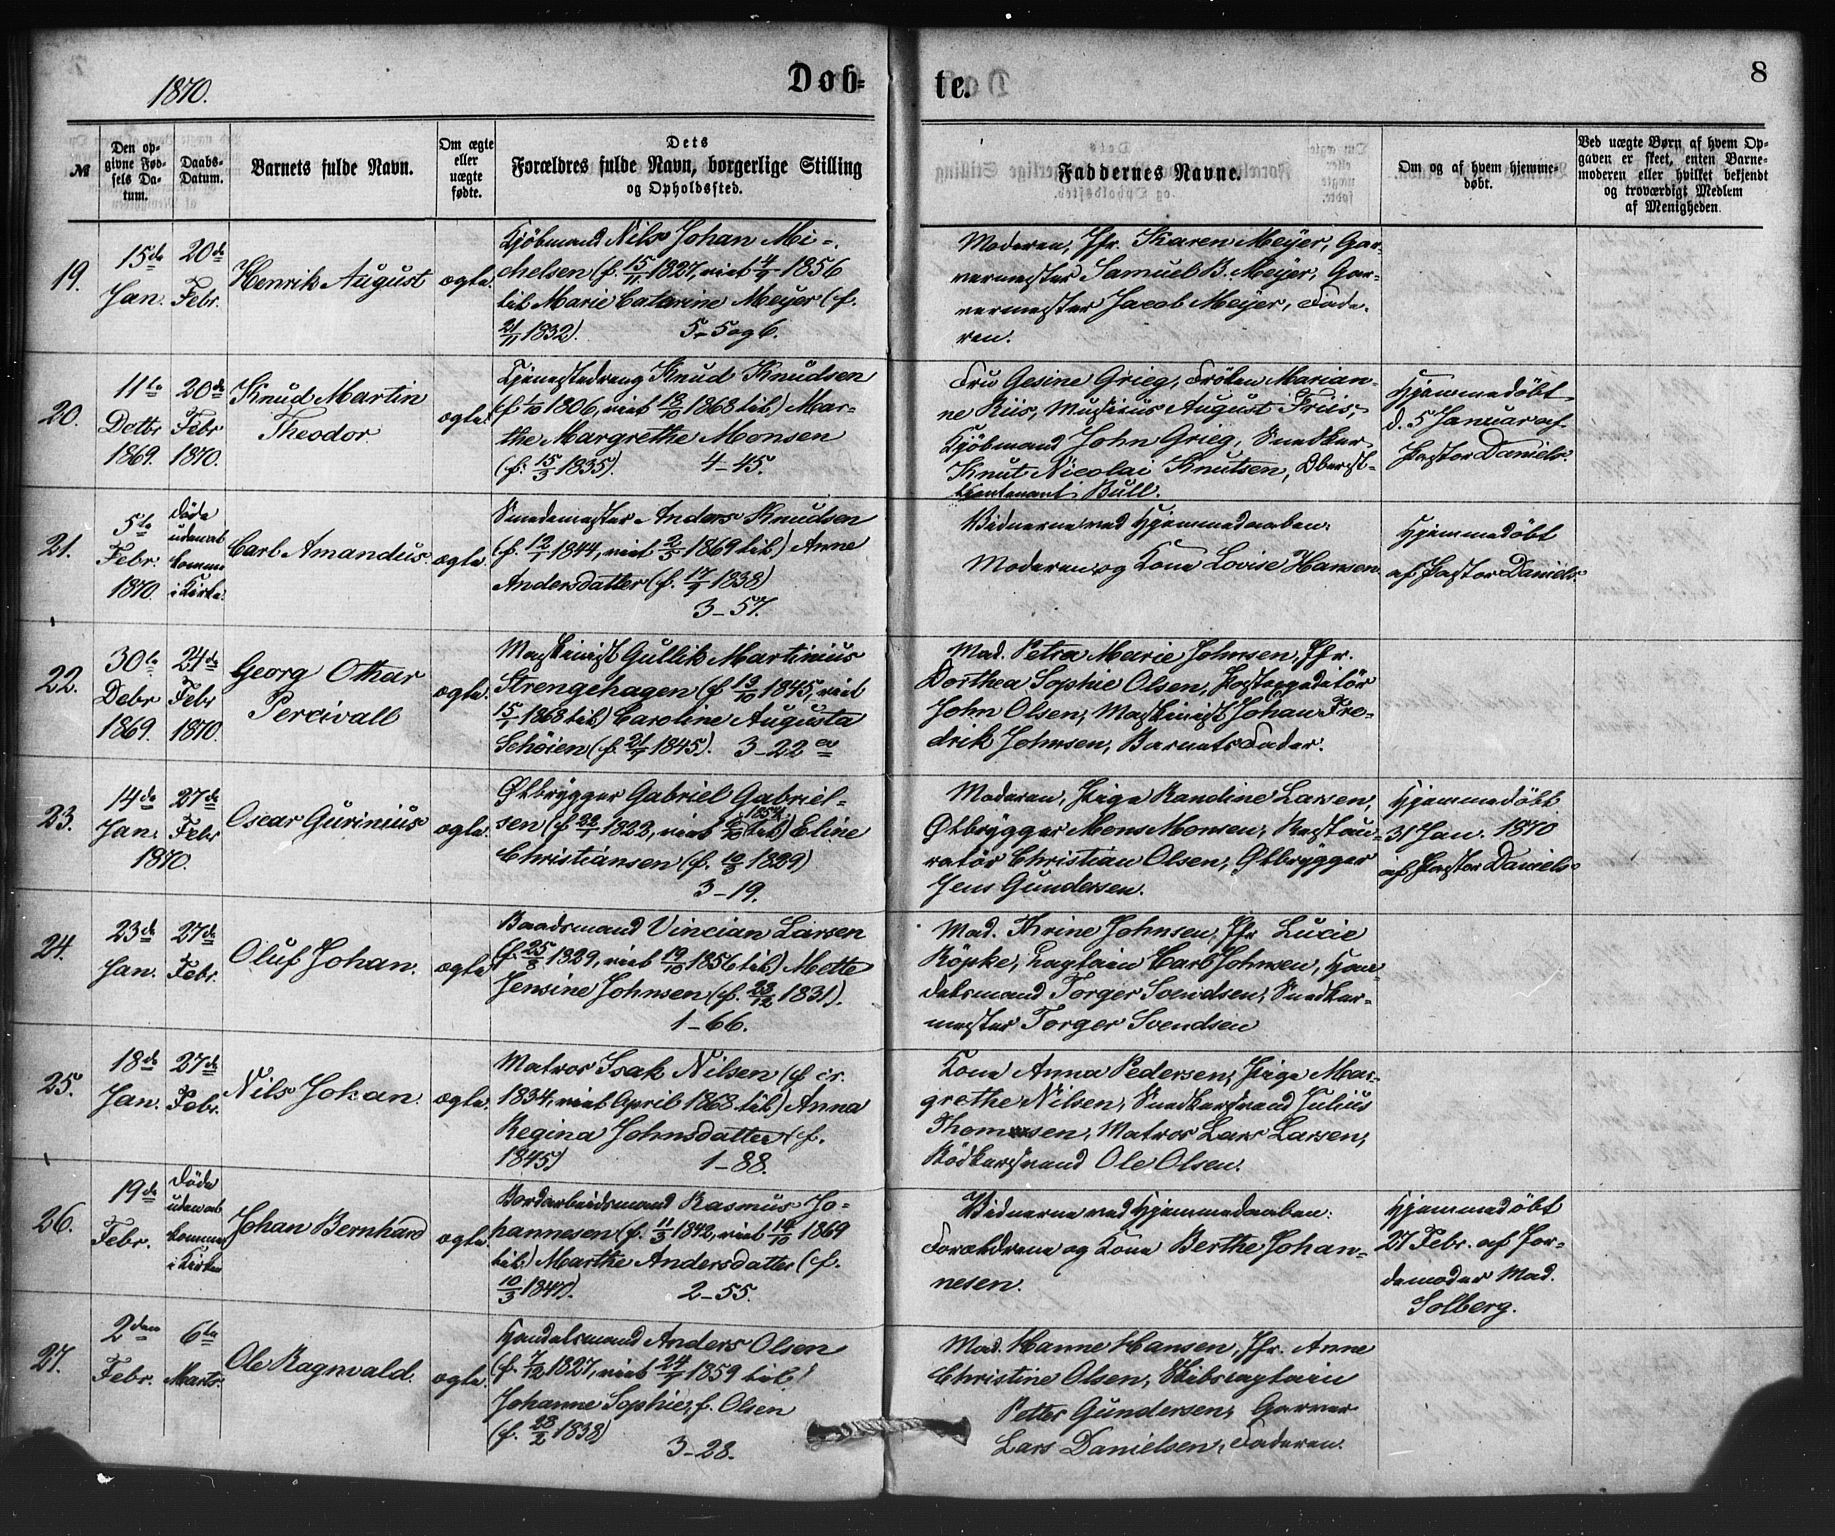 1870.
Døb-
te.
8
№
Den op-
givne Fød-
sels Da-
tum.
Daabs-
Datum.
Barnets fulde Navn.
Om ægte
eller
uægte
fødte.
Dets
Forældres fulde Navn, borgerlige Stilling
og Opholdssted.
Faddernes Navne.
Om og af hvem hjemme-
døbt.
Ved uægte Børn af hvem Op-
gaven er skeet, enten Barne-
moderen eller hvilket bekjendt
og troværdigt Medlem
af Menigheden.
19.
15de
Jan.
20de
Febr.
Henrik August
ægte.
Kjøbmand Nils Johan Mi-
chelsen (f. 15/11 1827, viet 4/9 1856
til Marie Catarine Meyer (f.
21/11 1832). 5-5 og 6.
Moderen, Jfr. Karen Meyer, Gar-
vermester Samuel B. Meyer, Gar-
vermester Jacob Meyer, Fade-
ren.
20.
11te
Decbr
1869.
20de
Febr
1870.
Knud Martin
Theodor.
ægte.
Tjenestedreng Knud Knudsen
(f. 1/10 1806, viet 18/10 1868 til) Mar-
the Margrethe Monsen
(f. 15/3 1835). 4-45.
Fru Gesine Grieg, Frøken Marian-
ne Riis, Musicus August Friis,
Kjöbmand John Grieg, Snedker
Knut Nicolai Knutsen, Oberst-
lieutenant Bull.
Hjemmedøbt
d. 5 Januar af
Pastor Daniels.
21.
5te
Febr.
1870.
Døde
uden at
komme
i Kirke.
Carl Amandus.
ægte.
Smedemester Anders Knudsen
(f. 12/7 1844, viet 2/5 1869 til) Anne
Andersdatter (f. 17/9 1838)
3-57.
Vidnerne ved Hjemmedaaben:
Moderen og Kone Lovise Hansen
Hjemmedøbt
af Pastor Daniels.
22.
30te
Decbr
1869.
24de
Febr
1870.
Georg Othar
Percivall
ægte.
Maskinist Gullik Martinius
Strengehagen (f 13/10 1845, viet
15/1 1868 til) Caroline Augusta
Schöien (f. 21/7 1845). 3-22 a
Mad. Petra Marie Johnsen, Jfr.
Dorthea Sophie Olsen, Postexpeditör
John Olsen, Maskinist Johan Fre-
drik Johnsen, Barnets Fader.
23.
14de
Jan.
1870.
27de
Febr
Oscar Gurinius
ægte.
Ølbrygger Gabriel Gabriel-
sen (f 22/1 1822, viet 1854 til) Eline
Christiansen (f. 10/3 1829)
3-19.
Moderen, Pige Randine Larsen,
Ølbrygger Mons Monsen, Restau-
ratör Christian Olsen, Ølbrygger
Jens Gundersen.
Hjemmedøbt
31 Jan. 1870
af Pastor Daniels.
24.
23de
Jan.
27de
Febr.
Oluf Johan.
ægte.
Baadsmand Vincian Larsen
(f. 25/8 1829, viet 19/10 1856 til) Mette
Jensine Johnsen (f. 23/12 1831).
1-66.
Mad. Trine Johnsen, Jfr Lucie
Röpke, Captain Carl Johnsen, Han-
delsmand Torger Svendsen, Snedker-
mester Torger Svendsen
25.
18de
Jan.
27de
Febr.
Nils Johan.
ægte.
Matros Isak Nilsen (f cir.
1834, viet April 1868 til) Anna
Regina Johnsdatter (f.
1845) 1-88.
Kone Anna Pedersen, Pige Mar-
grethe Nilsen, Snedkersvend Julius
Thomsen, Matros Lars Larsen,
Bödkersvend Ole Olsen.
26.
19de
Febr.
Døde
uden at
komme
i Kirken
Johan Bernhard
ægte.
Bordarbeidsmand Rasmus Jo-
hannesen (f. 11/3 1842, viet 14/10 1869
til) Marthe Andersdatter (f.
10/3 1847). 2-55.
Vidnerne ved Hjemmedaaben:
Forældrene og Kone Berthe Johan-
nesen.
Hjemmedøbt
27 Febr. af Jor-
demoder Mad.
Solberg.
27.
2den
Febr.
6te
Marts.
Ole Ragnvald.
ægte.
Handelsmand Anders Olsen
(f. 7/12 1827, viet 24/7 1859 til)
Johanne Sophie, f. Olsen
(f. 28/2 1838)
3-28.
Mad. Hanne Hansen, Jfr. Anne
Christine Olsen, Skibscaptain
Petter Gundersen, Garver
Lars Danielsen, Faderen.